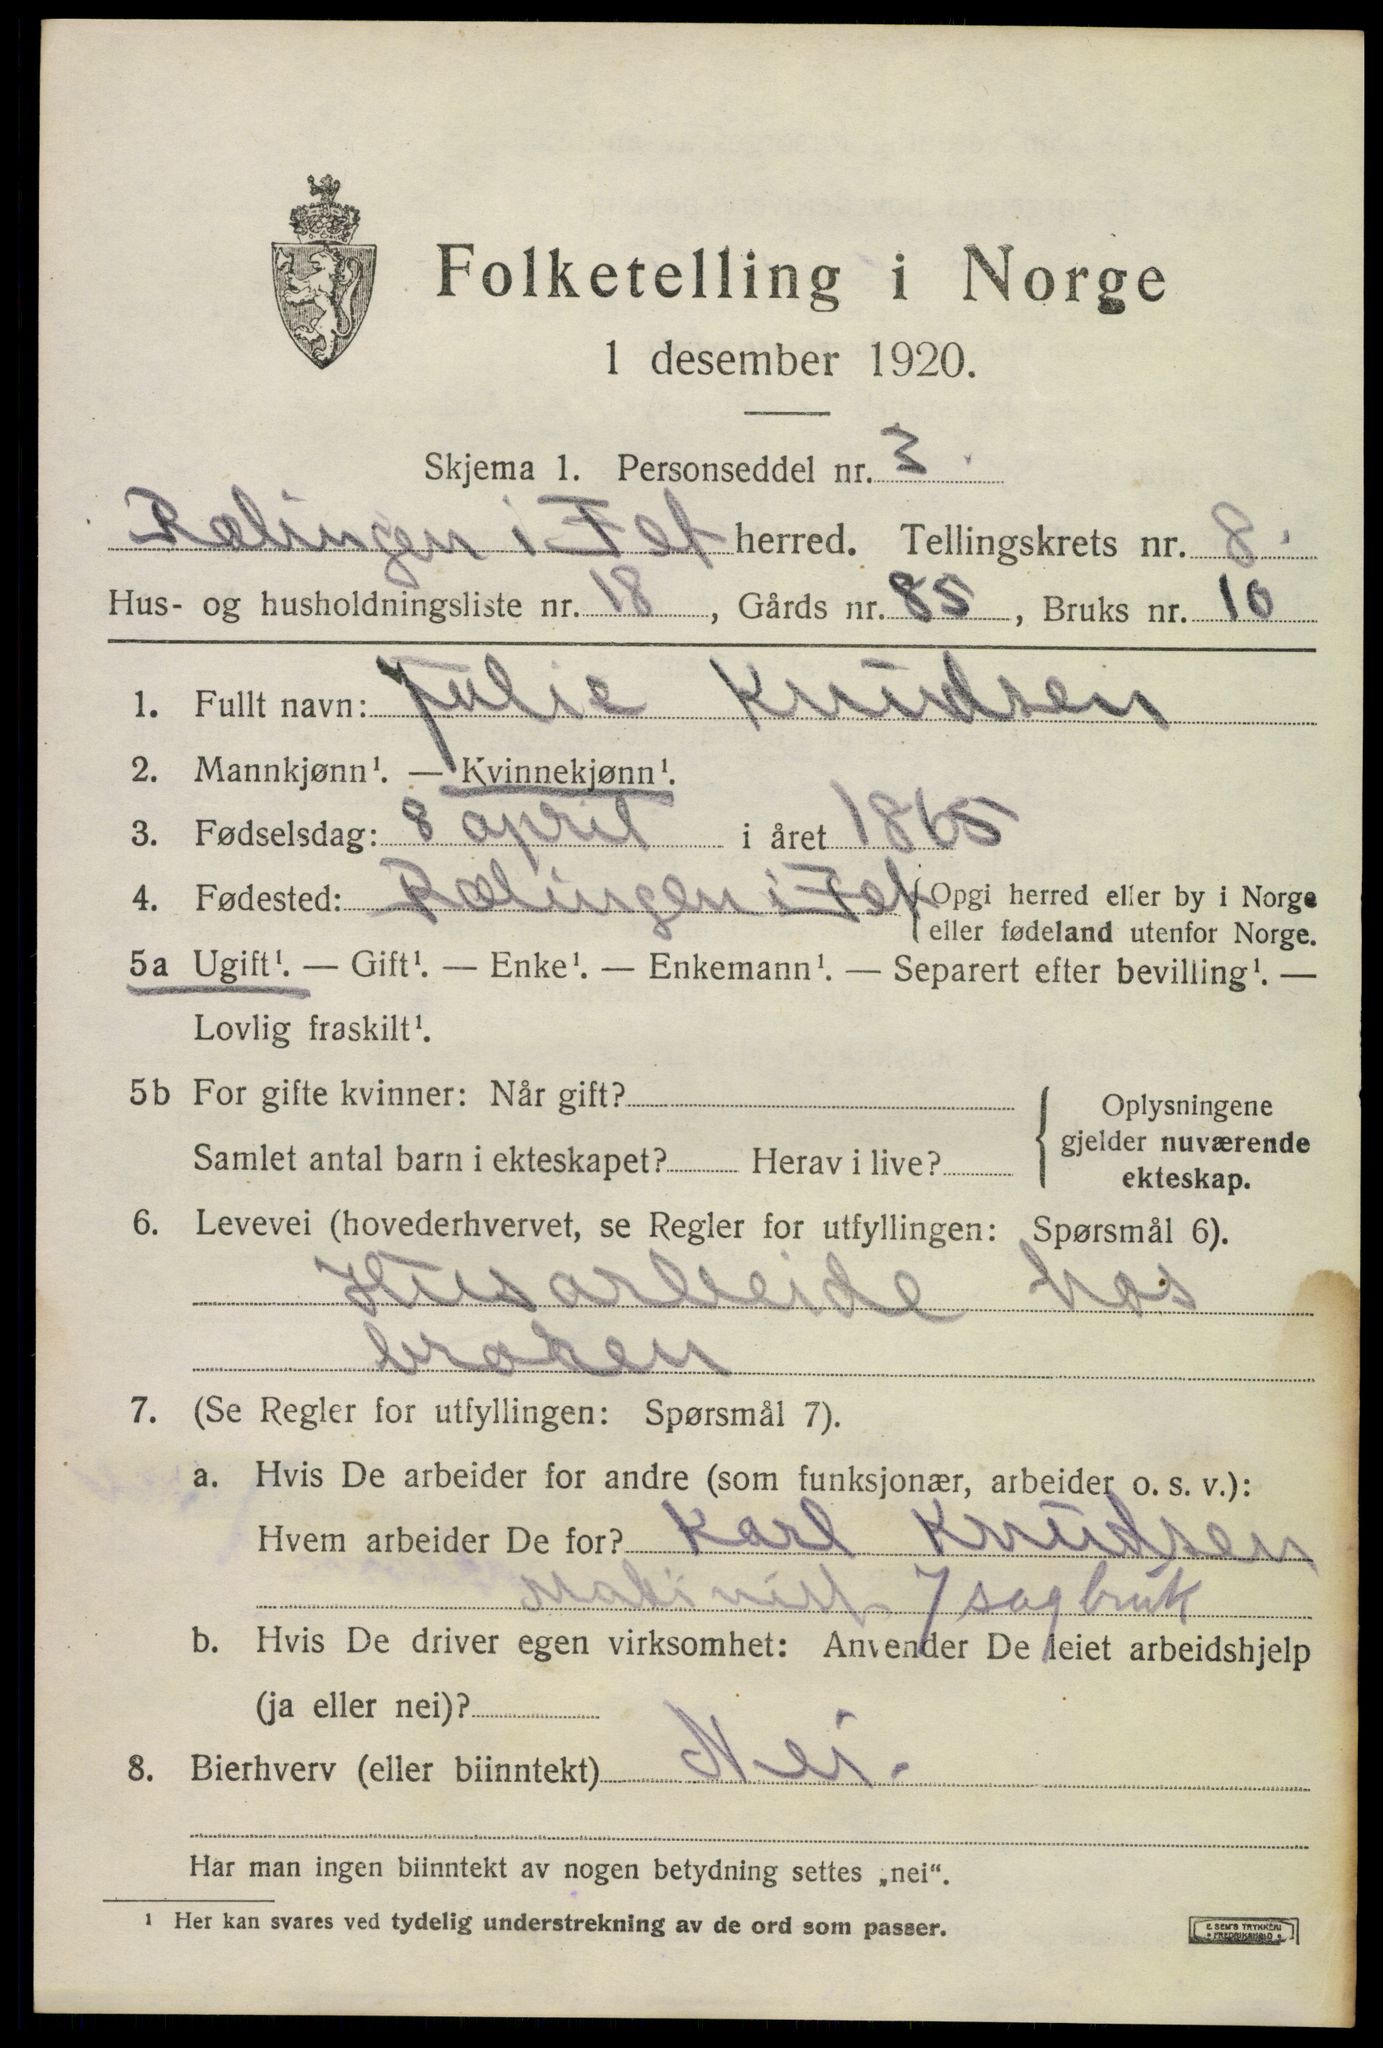 Folketelling i Norge
1 desember 1920.
Skjema 1. Personseddel nr. 3.
Rælingen i Fet herred. Tellingskrets nr. 8.
Hus- og husholdningsliste nr. 18, Gårds nr. 85, Bruks nr. 10
1. Fullt navn: Julie Knudsen
2. Mannkjønn¹. — Kvinnekjønn¹.
3. Fødselsdag: 8 april i året 1865
4. Fødested: Rælingen i Fet {Opgi herred eller by i Norge
eller fødeland utenfor Norge.
5a Ugift¹. — Gift¹. — Enke¹. — Enkemann¹. — Separert efter bevilling¹. —
Lovlig fraskilt¹.
5b For gifte kvinner: Når gift?
Samlet antal barn i ekteskapet? Herav i live?
Oplysningene
gjelder nuværende
ekteskap.
6. Levevei (hovederhvervet, se Regler for utfyllingen: Spørsmål 6).
Husarbeide hos
broren
7. (Se Regler for utfyllingen: Spørsmål 7).
a. Hvis De arbeider for andre (som funksjonær, arbeider o. s. v.):
Hvem arbeider De for? Karl Knudsen
sagbruk
b. Hvis De driver egen virksomhet: Anvender De leiet arbeidshjelp
(ja eller nei)?
8. Bierhverv (eller biinntekt) Nei.
Har man ingen biinntekt av nogen betydning settes „nei“.
¹ Her kan svares ved tydelig understrekning av de ord som passer.
E. SEM'S TRYKKERI
FREDRIKSHALD